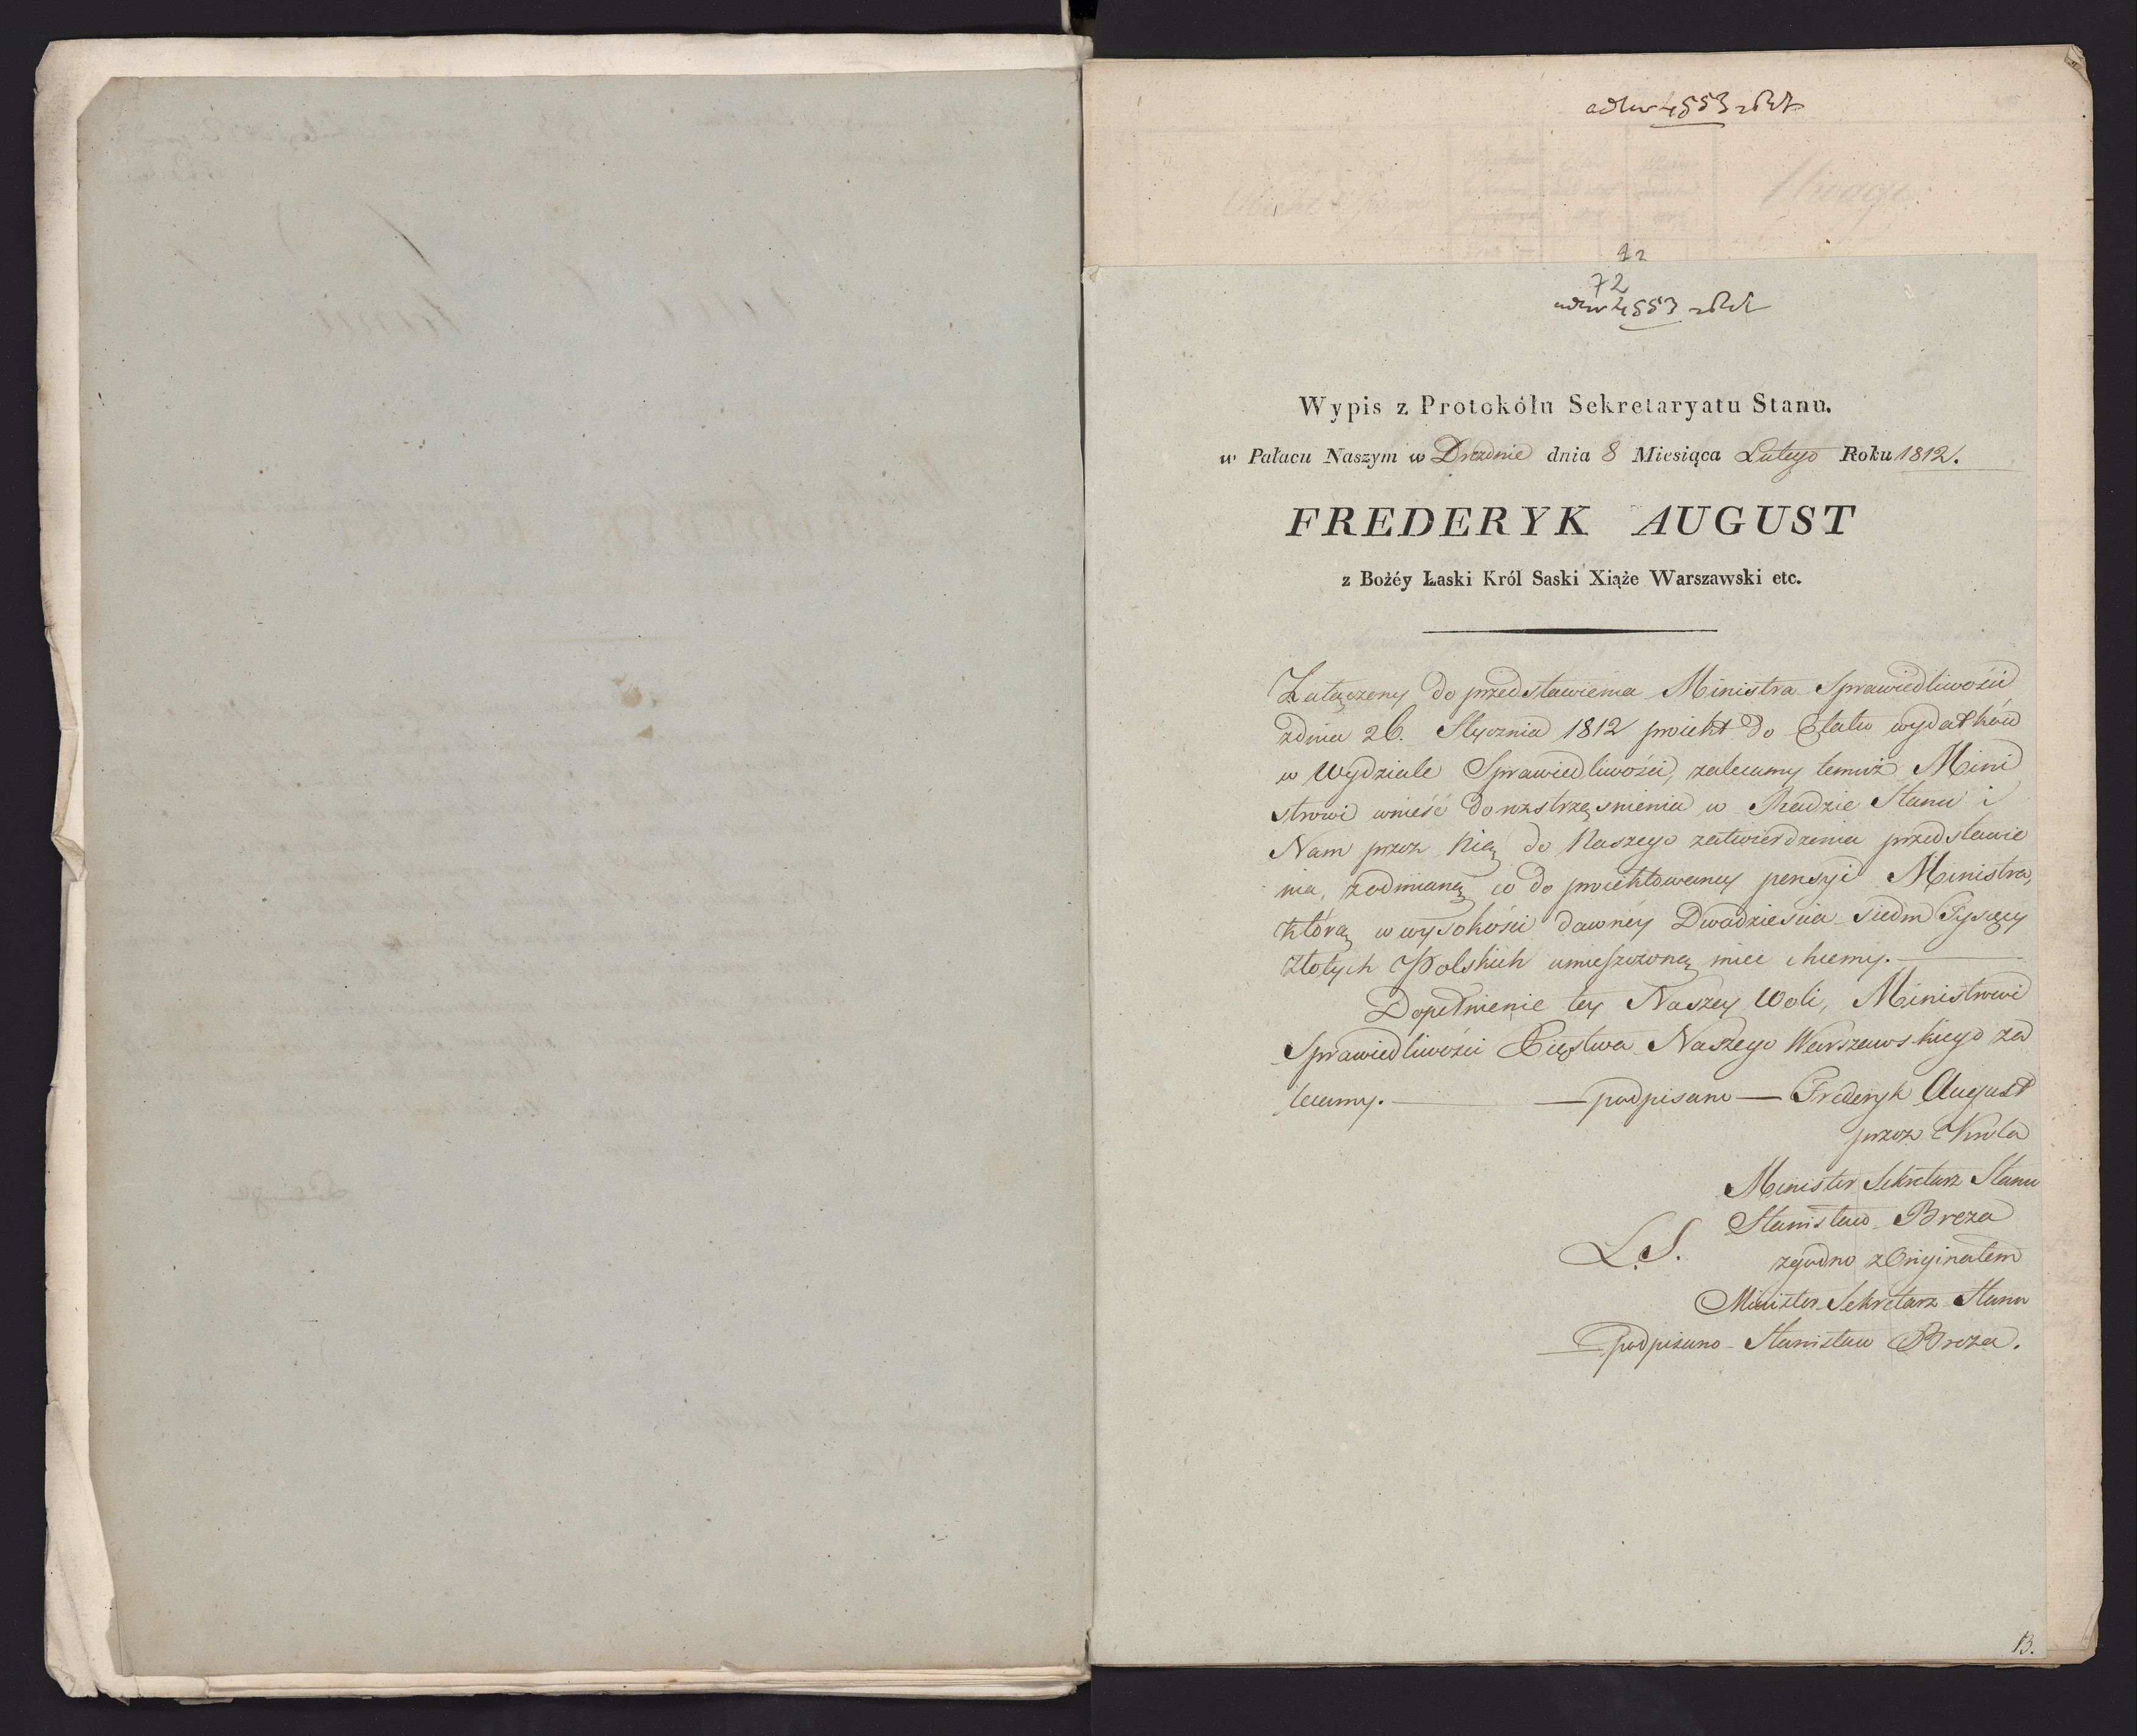 4553
12
72
4553
Wypis z Protokółu Sekretaryatu Stanu.
w Pałacu Naszym w Dreznie dnia 8 Miesiąca Lutego Roku 1812.
FREDERYK AUGUST
z Bożéy Łaski Król Saski Xiąże Warszawski etc.
Załączony do przedstawienia Ministra Sprawiedliwości
zdnia 26. Stycznia 1812 proiekt do Etatu wydatków
w Wydziale Sprawiedliwości, zalecamy temuż Mini
strowi wnieść do rozstrząśnienia w Radzie Stanu i
Nam przez Nią do Naszego zatwierdzenia przedstawie
nia, zodmianą co do proiektowaney pensyi Ministra,
którą w wysokości dawney Dwadzieścia siedm Tysięcy
Złotych Polskich umieszczoną mieć chcemy.
Dopełnienie tey Naszey Woli, Ministrowi
Sprawiedliwości Xięstwa Naszego Warszawskiego za
lecamy. — podpisano — Frederyk August
przez Króla
Minister Sekretarz Stanu
Stanisław Breza
L.S. zgodno z Oryginałem
Minister Sekretarz Stanu
podpisano - Stanisław Breza.
13.